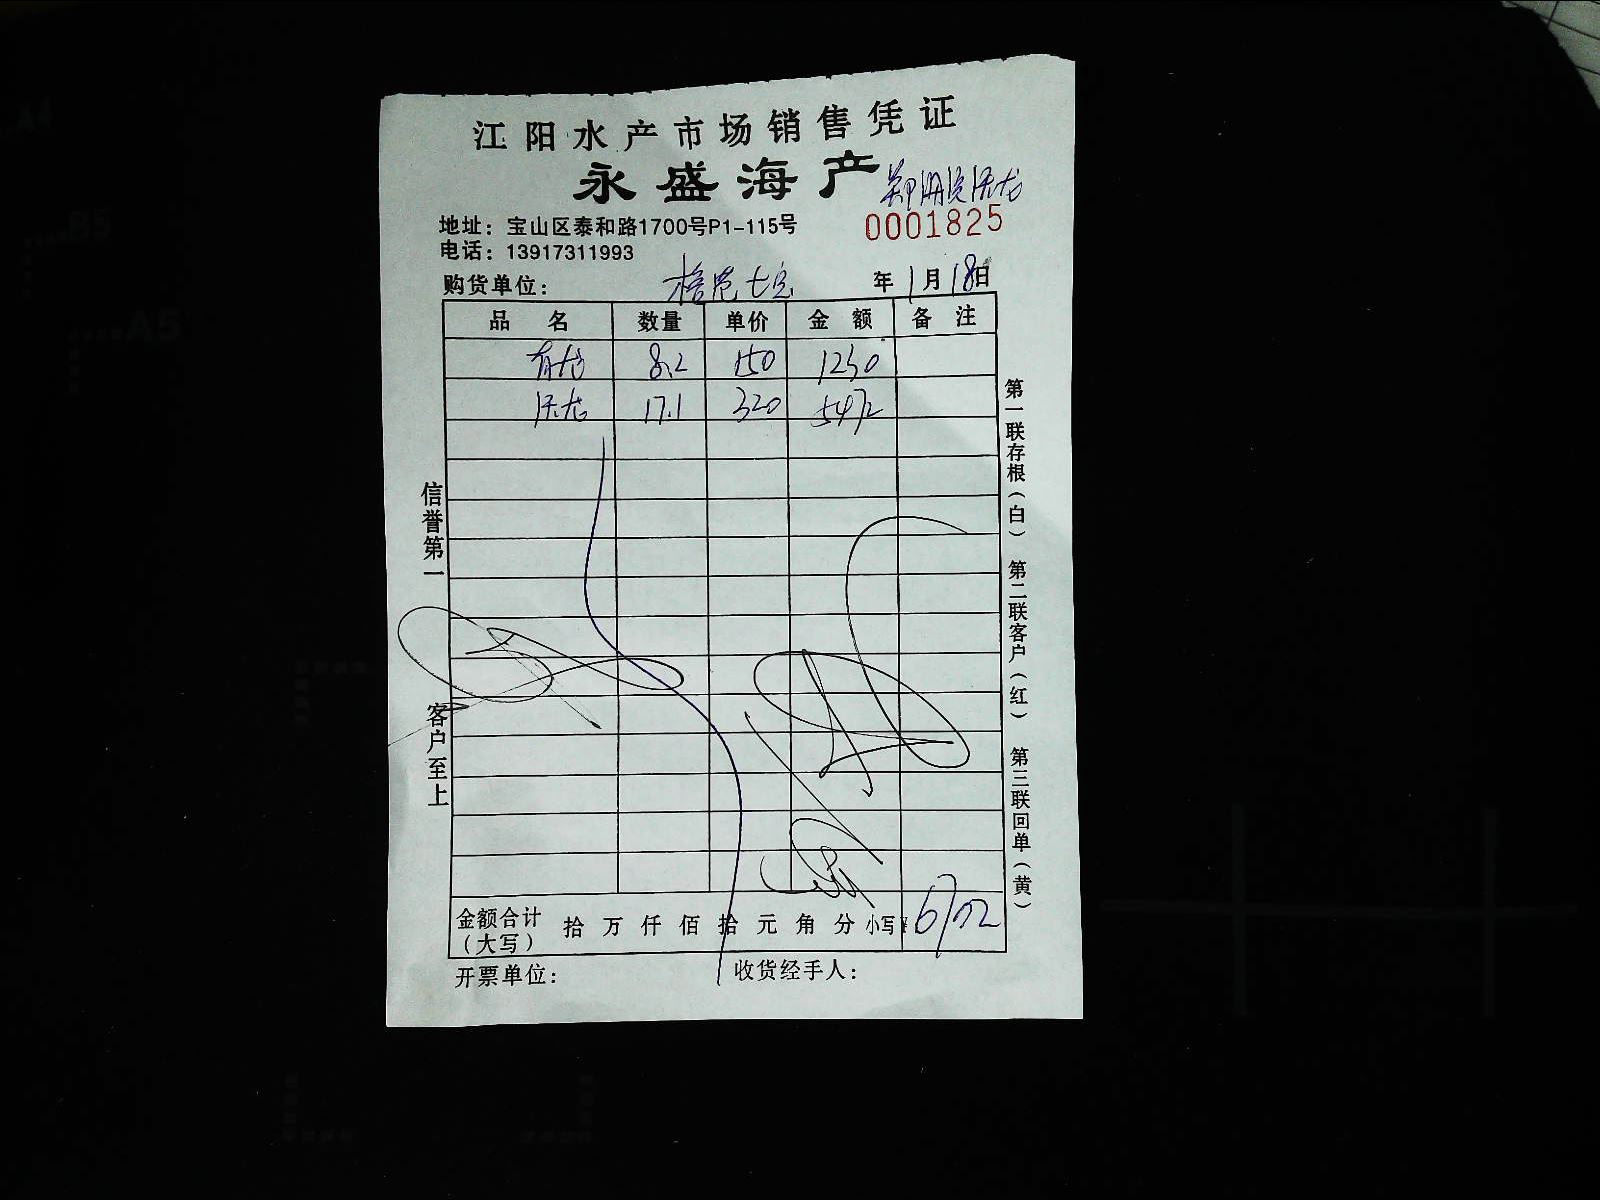 江阳水产市场销售凭证
永盛海产
0001825
地址：宝山区泰和路1700号P1-115号
电话：13917311993
购货单位： 年1月18日
品名 数量 单价 金额 备注
8.2 150 1230
17.1 320 5472
信誉第一 客户至上
第一联存根（白） 第二联客户（红） 第三联回单（黄）
金额合计（大写） 拾 万 仟 佰 拾 元 角 分 小写¥ 6702
开票单位： 收货经手人：